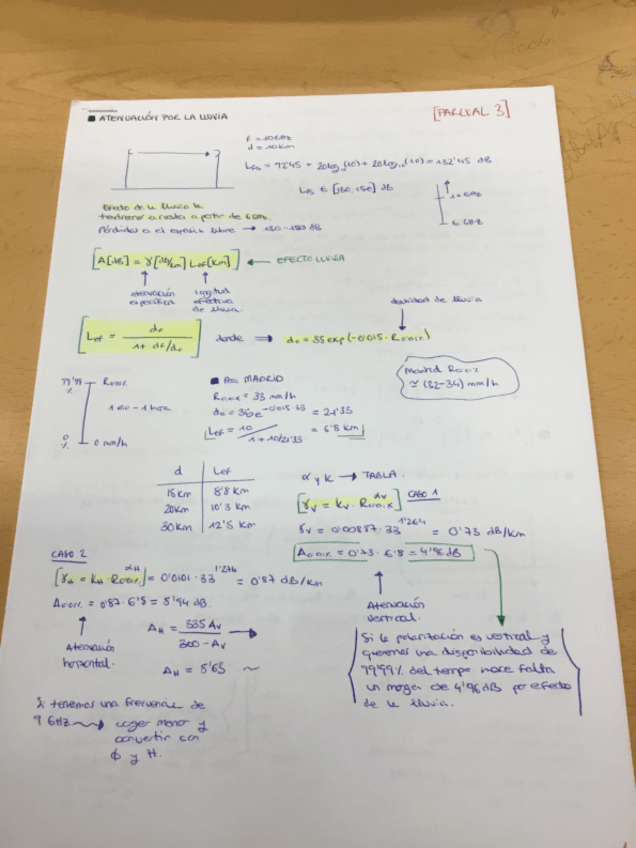 ■ ATENUACIÓN POR LA LLUVIA
[PARCIAL 3]
f = 10GHz
d = 10km
Lfs = 92'45 + 20log₁₀(10) + 20log₁₀(10) = 132'45 dB.
Lfs ∈ [130,150] dB
6 GHz
Efecto de la lluvia lo
tendremos en cuenta a partir de 6 GHz.
Pérdidas en el espacio libre → 130-150 dB
[A[dB] = γ[dB/km] Lef[km]] ← EFECTO LLUVIA
atenuación
específica
longitud
efectiva
de lluvia.
intensidad de lluvia
[Lef = do / 1 + d/do] donde ⟹ do = 35 exp(-0'015 · R0'01%)
Madrid R0'01%
≃ (32-34) mm/h
99'99 % R0'01%
0 % 0 mm/h
■ En MADRID
R0'01% = 33 mm/h
do = 35e^-0'015·33 = 21'33
Lef = 10 / 1 + 10/21'33 = 6'8 km
d Lef
15km 8'8 km
20km 10'3 km
30km 12'5 km
α y k → TABLA.
[γv = kv · R0'01%^αv] CASO 1
γv = 0'00887 · 33^1'264 = 0'73 dB/km
A0'01% = 0'73 · 6'8 = 4'96 dB
CASO 2
[γH = kH · R0'01%^αH] = 0'0101 · 33^1'276 = 0'87 dB/km
A0'01% = 0'87 · 6'8 = 5'94 dB.
Atenuación
horizontal.
AH = 335 Av / 300 - Av →
AH = 5'63 ~
Atenuación
vertical.
Si la polarización es vertical y
queremos una disponibilidad de
99'99% del tiempo hace falta
un margen de 4'96 dB por efecto
de la lluvia.
Si tenemos una frecuencia de
9 GHz → coger menor y
convertir con
ϕ y H.